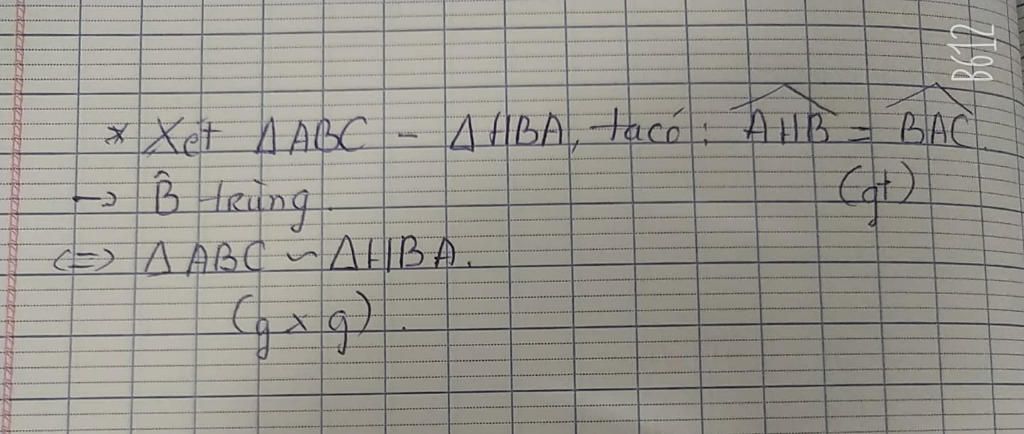 * Xét ΔABC - ΔHBA, ta có: \widehat{AHB} = \widehat{BAC}.
(gt)
→ B̂ trùng.
<=> ΔABC ∽ ΔHBA.
(g x g).
B612